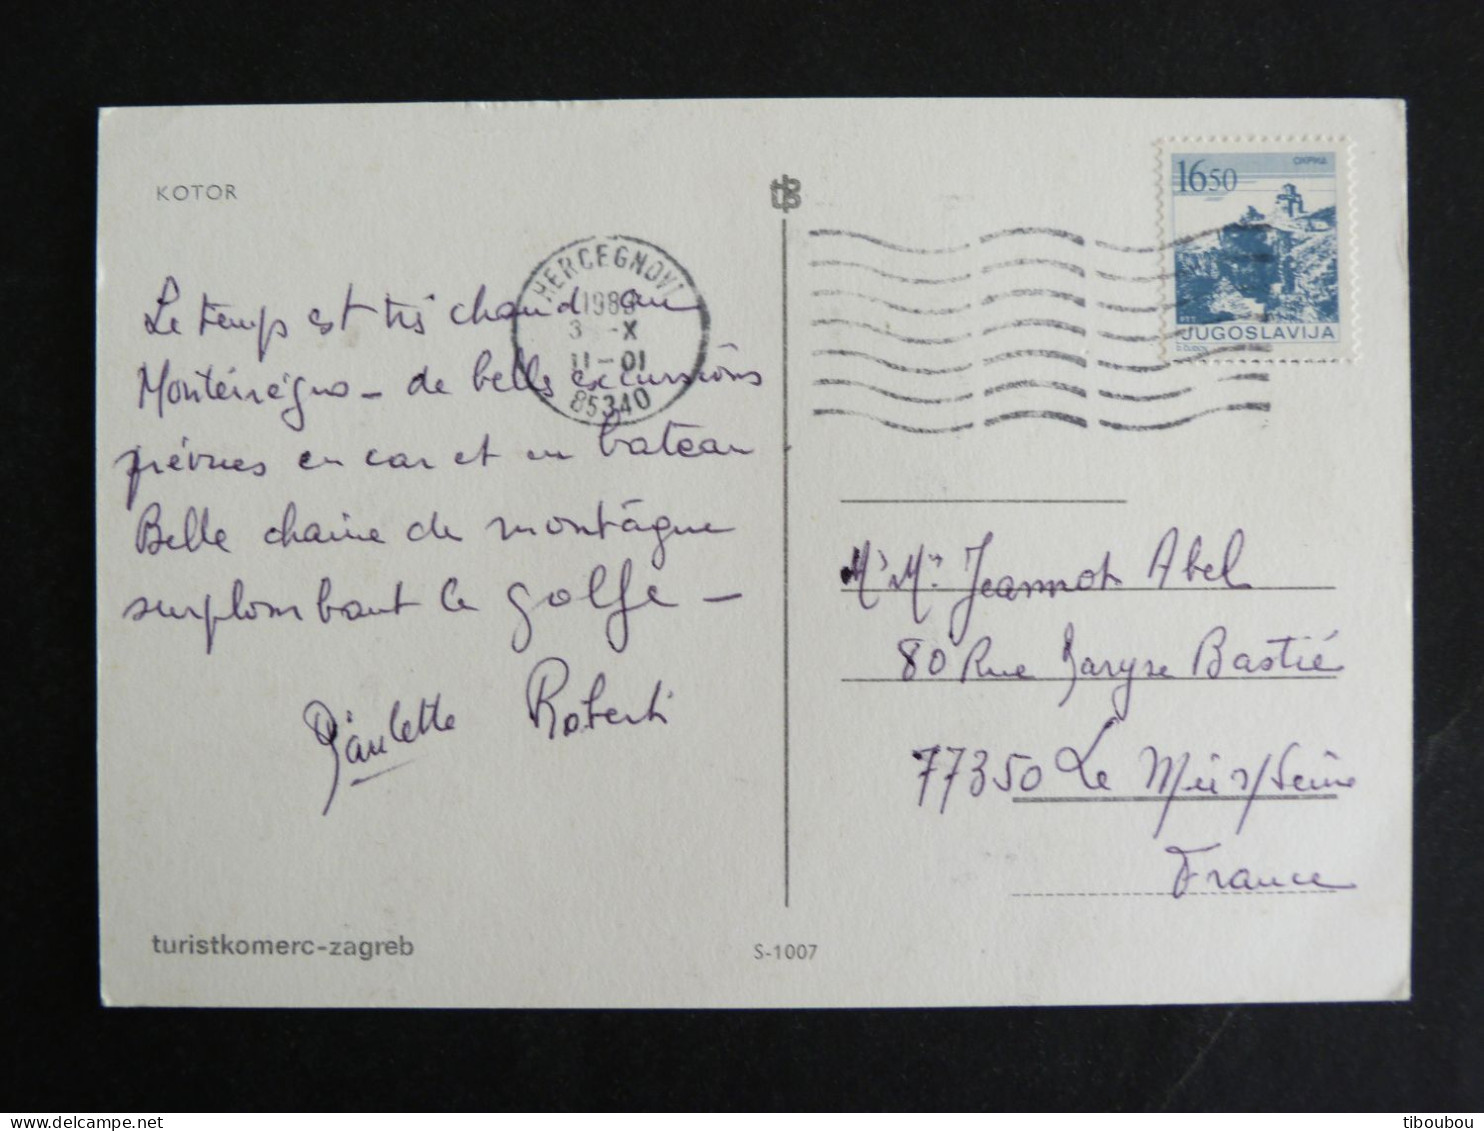 KOTOR
Le temps est très chaud au
Monténégro - de belles excursions
prévues en car et en bateau
Belle chaine de montagne
surplombant le golfe -
Paulette Robert
turistkomerc-zagreb
S-1007
HERCEGNOVI
198
X
11-01
85340
1650
ОХРИД
JUGOSLAVIJA
Mr Me Jeannot Abel
80 Rue Maryse Bastié
77350 Le Mée s/Seine
France
tiboubou